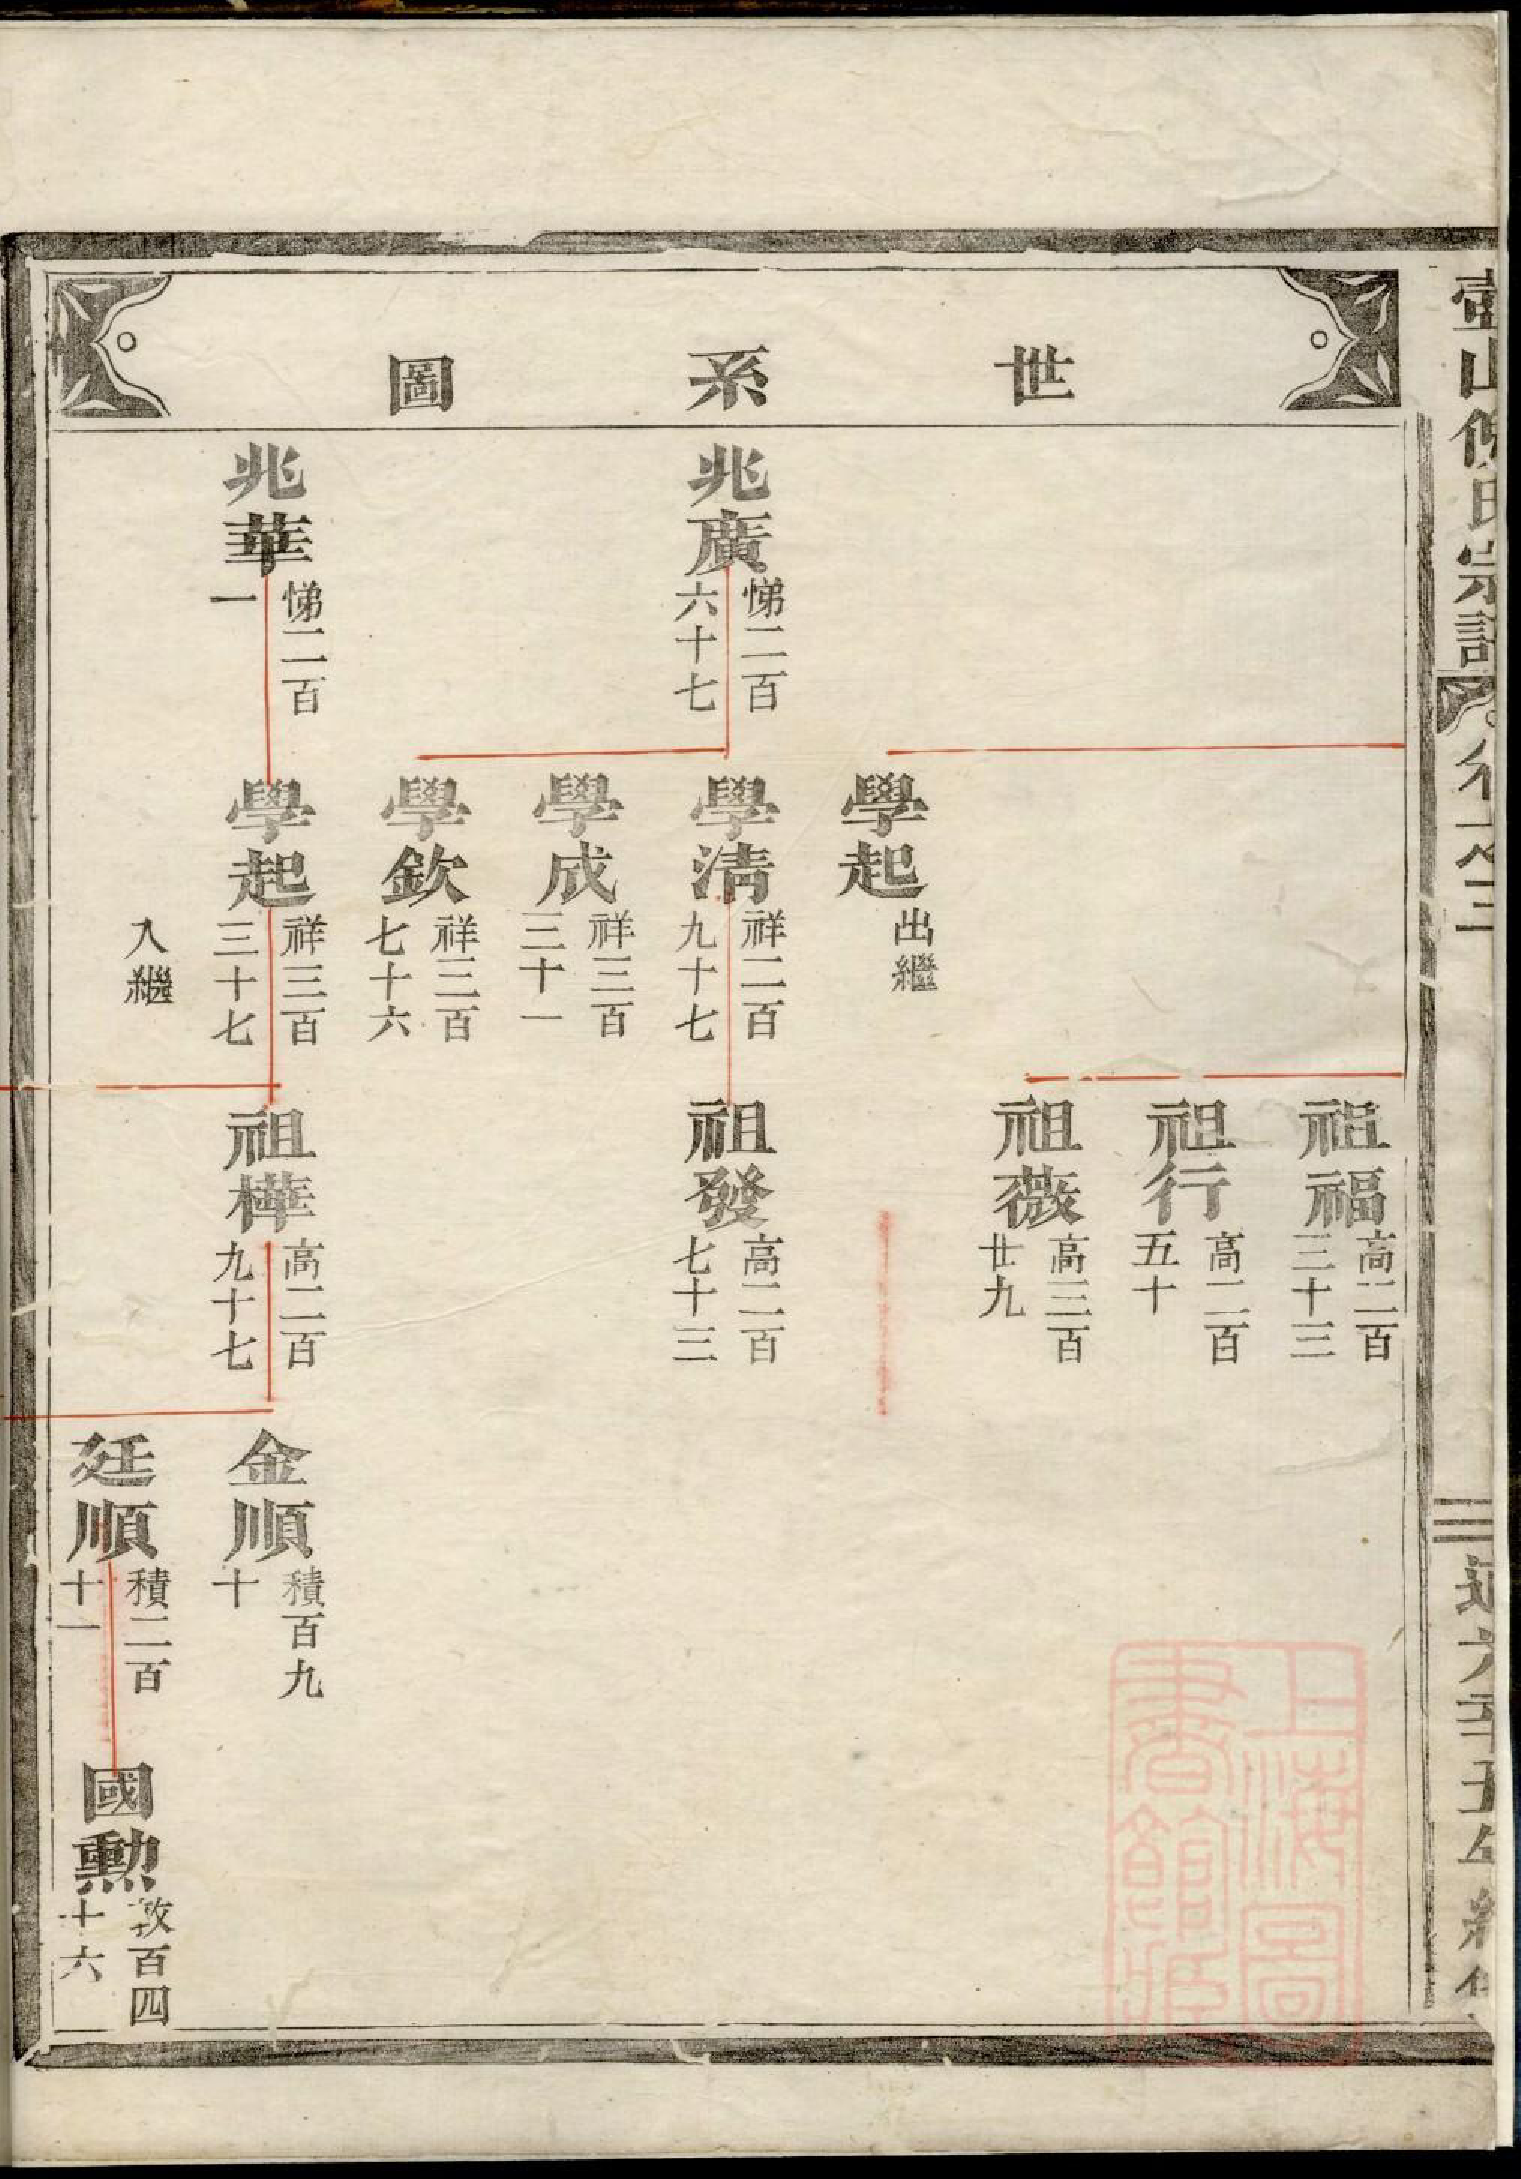 世系圖
兆廣 悌二百六十七
兆華 悌二百一
學起 出繼
學清 祥二百九十七
學成 祥三百三十一
學欽 祥三百七十六
學起 祥三百三十七 入繼
祖福 高二百三十三
祖行 高二百五十
祖薇 高三百廿九
祖發 高二百七十三
祖樺 高二百九十七
金順 積百九十
廷順 積二百十一
國勲 敦百四十六
上海圖書館藏